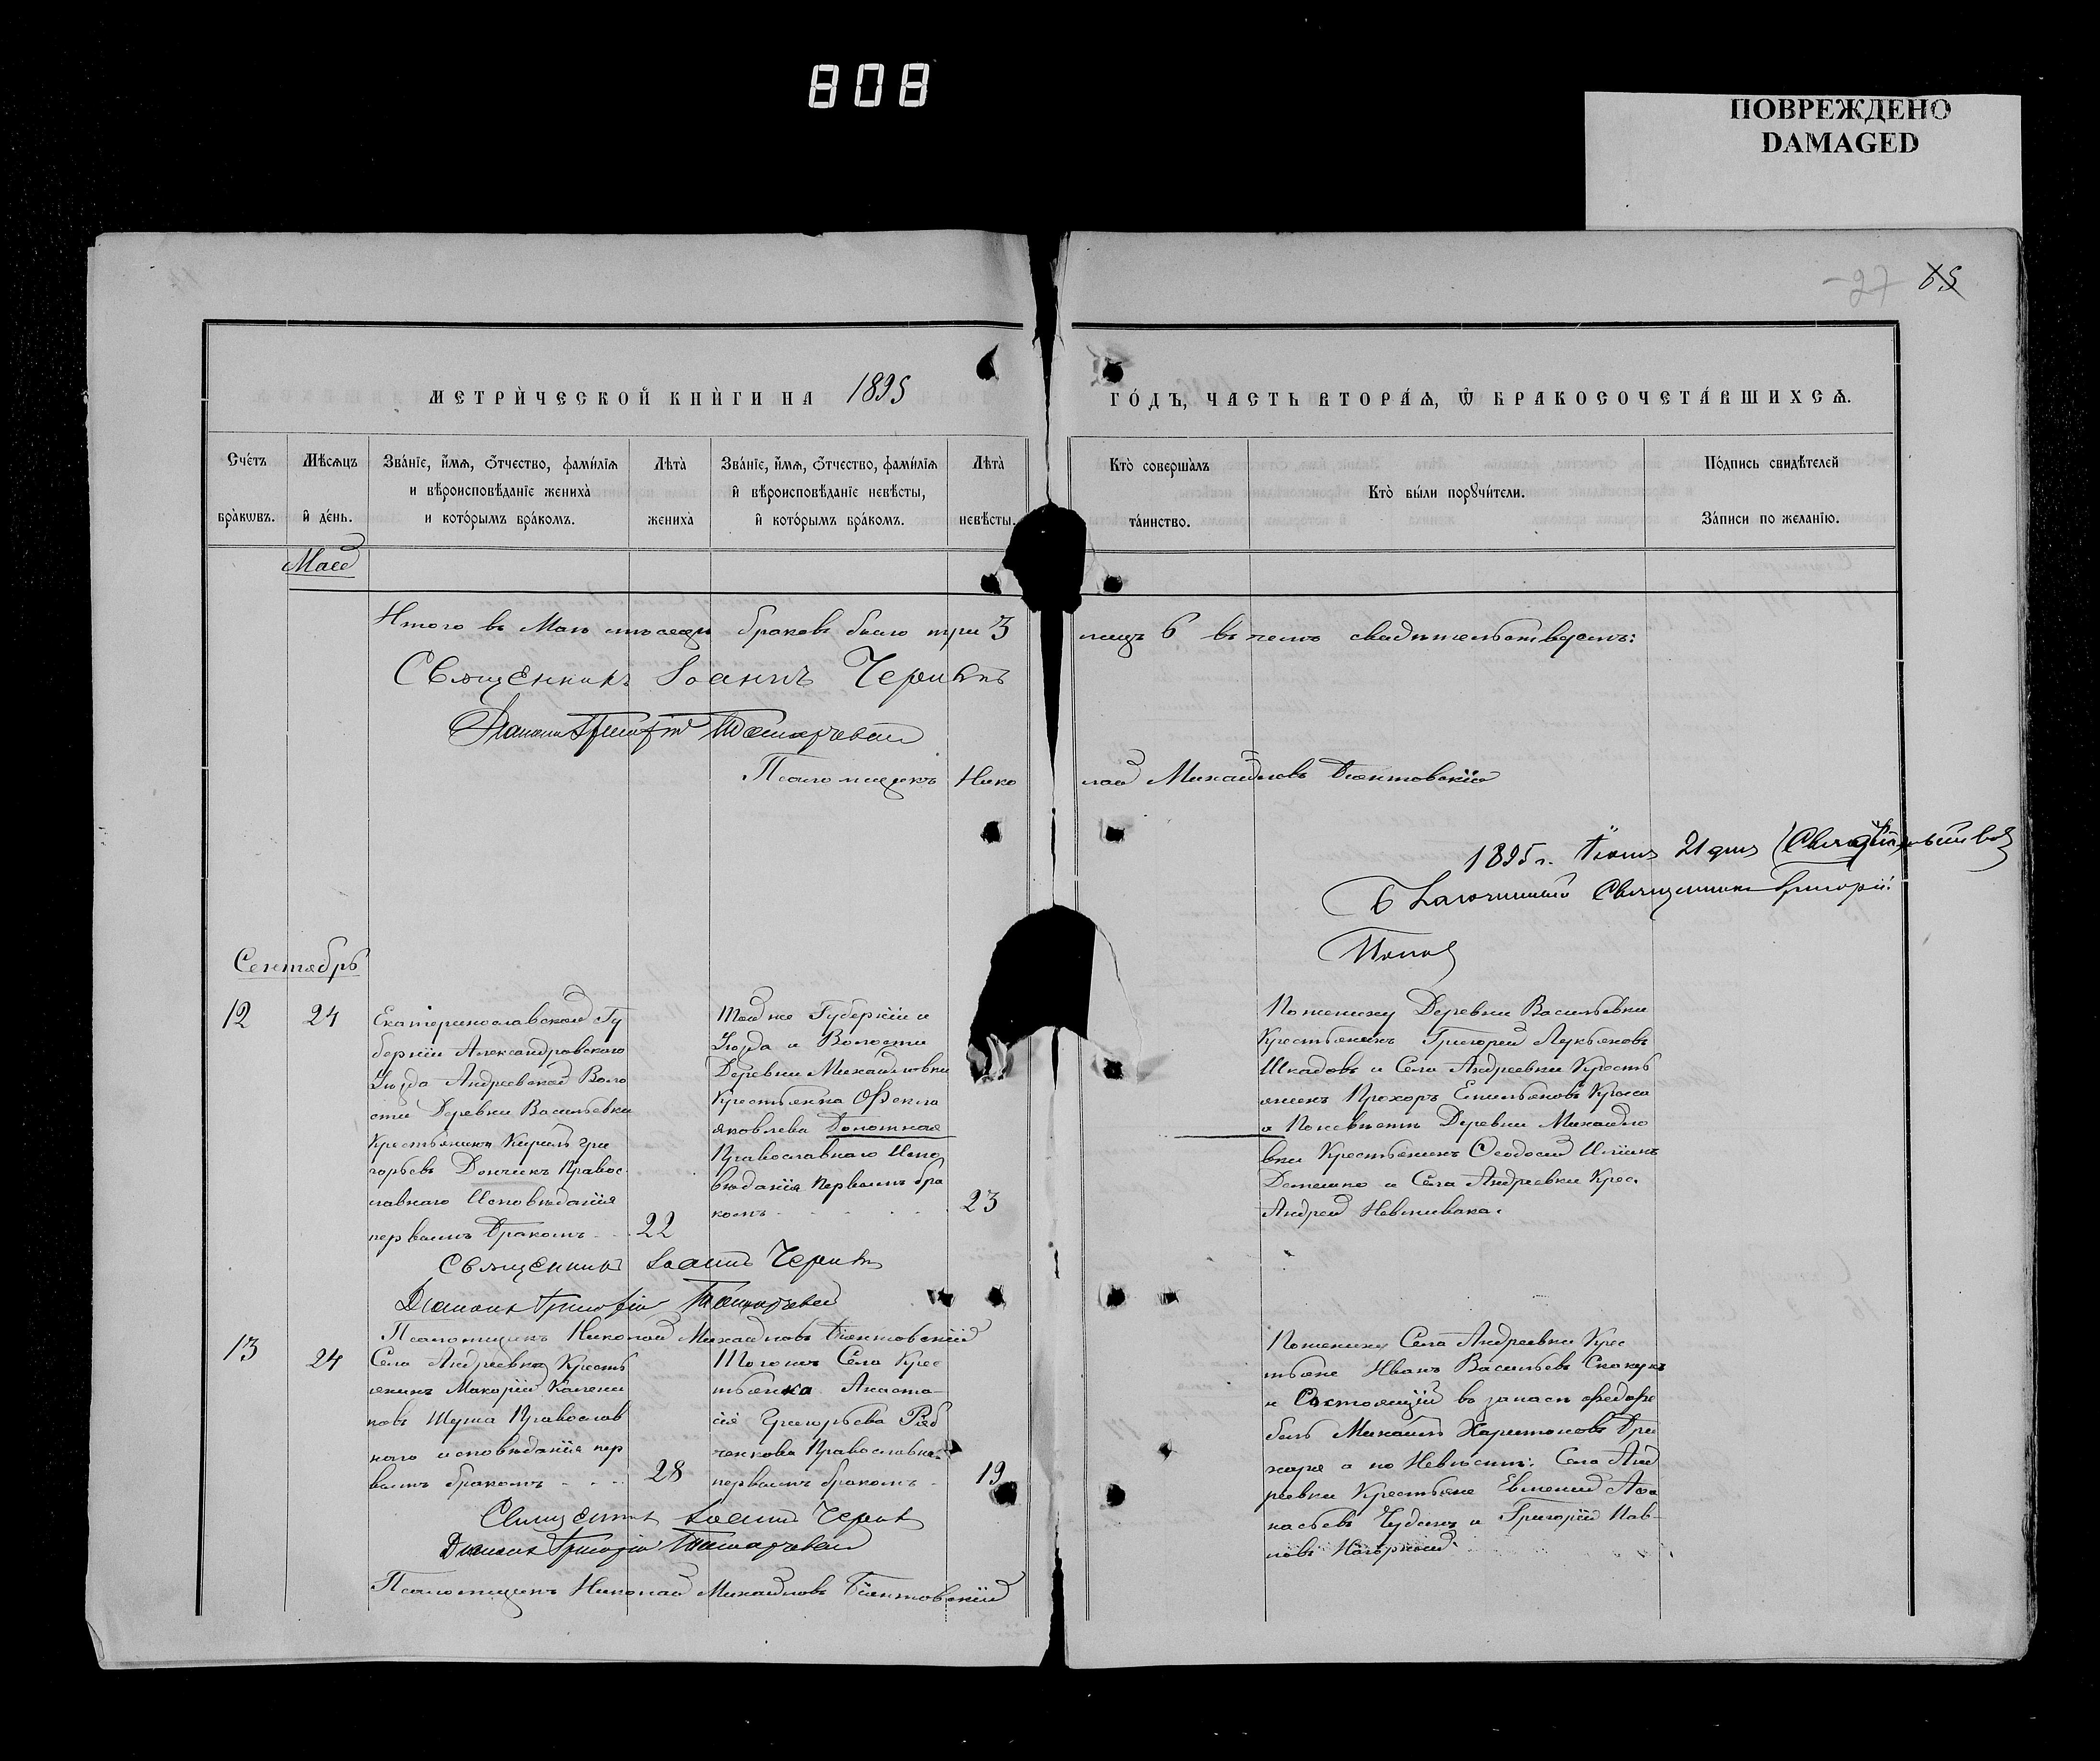 808
ПОВРЕЖДЕНО
DAMAGED
27 65
МЕТРИ́ЧЕСКОЙ КНИ́ГИ НА 1895
ГО́ДЪ, ЧАСТЬ ВТОРА́Ѧ, Ѡ БРАКОСОЧЕТА́ВШИХСѦ.
Сче́тъ бра́кѡвъ.
Мѣ́сѧцъ и́ де́нь.
Зва́нїе, и́мѧ, о́тчество, фами́лїѧ и вѣроисповѣ́данїе жениха̀ и кото́рымъ бра́комъ.
Лѣта̀ жениха̀
Зва́нїе, и́мѧ, о́тчество, фами́лїѧ и́ вѣроисповѣ́данїе невѣ́сты, и́ кото́рымъ бра́комъ.
Лѣта̀ невѣ́сты.
Кто̀ соверша́лъ та́инство.
Кто̀ бы́ли порꙋчи́тели.
По́дпись свидѣ́телей За́писи по жела́нїю.
Май
Итого въ Маѣ мѣсяцѣ браковъ было три 3
лицъ 6 въ чемъ свидѣтельствуемъ:
Священникъ Іоаннъ
Діаконъ Григорій
Псаломщикъ Нико
лай Михайловъ
1895 г. Іюня 21 дня
Благочинный Священникъ Григорій
Поповъ
Сентябрь
12
24
Екатеринославской Гу
берніи Александровскаго
Уѣзда Андреевской Воло
сти Деревни Васильевки
Крестьянинъ Кирилъ Гри
горьевъ Дончикъ Правос
лавнаго Исповѣданія
первымъ бракомъ
22
Той же Губерніи и
Уѣзда и Волости
Деревни Михайловки
Крестьянка Ѳекла
Яковлева
Православнаго Испо
вѣданія первымъ бра
комъ
23
По жениху Деревни Васильевки
Крестьянинъ Григорій Лукьяновъ
Шкадовъ и Села Андреевки Кресть
янинъ Прохоръ Емильяновъ
а По невѣстѣ Деревни Михайло
вки Крестьянинъ Ѳеодосій
и Села Андреевки Крес.
Андрей
Священникъ Іоаннъ
Діаконъ Григорій
Псаломщикъ Николай Михайловъ
13
24
Села Андреевки Кресть
янинъ Макорій
Православ
наго исповѣданія пер
вымъ бракомъ
28
Того же Села Крес
тьянка Анаста
сія Григорьева Ряб
ченкова Православна
первымъ бракомъ
19
По жениху Села Андреевки Крес
тьяне Иванъ Васильевъ Скакунъ
и Состоящій въ запасѣ
Михаилъ Харитоновъ
а по Невѣстѣ: Села Анд
реевки Крестьяне Евменій Аѳа
насьевъ и Григорій Пав
ловъ
Священникъ Іоаннъ
Діаконъ Григорій
Псаломщикъ Николай Михайловъ